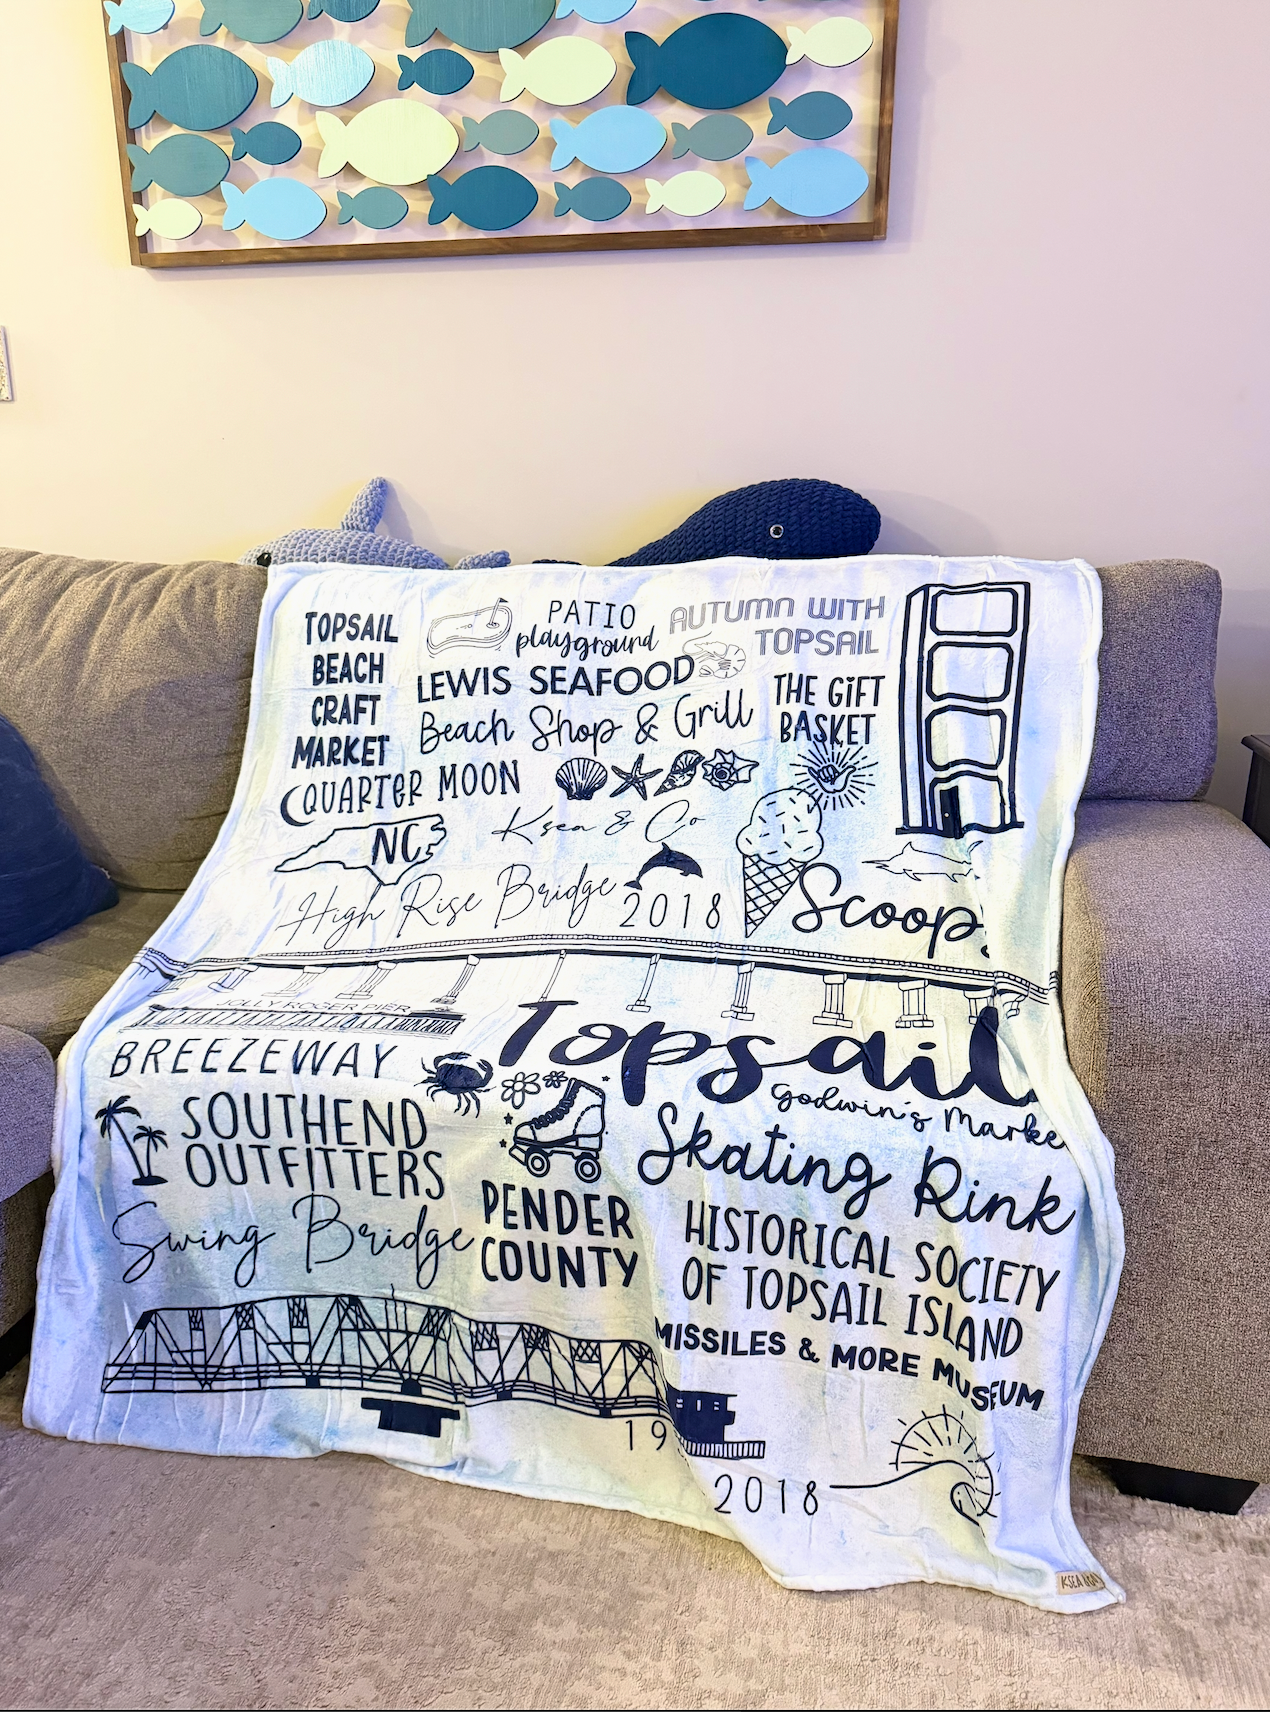 TOPSAIL
BEACH
CRAFT
MARKET
PATIO
playground
AUTUMN WITH
TOPSAIL
LEWIS SEAFOOD
Beach Shop & Grill
THE GIFT
BASKET
QUARTER MOON
NC
Ksea & Co
High Rise Bridge
2018
Scoop
JOLLY ROGER PIER
Topsail
BREEZEWAY
Godwin's Marke
SOUTHEND
OUTFITTERS
Skating Rink
Swing Bridge
PENDER
COUNTY
HISTORICAL SOCIETY
OF TOPSAIL ISLAND
MISSILES & MORE MUSEUM
19
2018
KSEA &